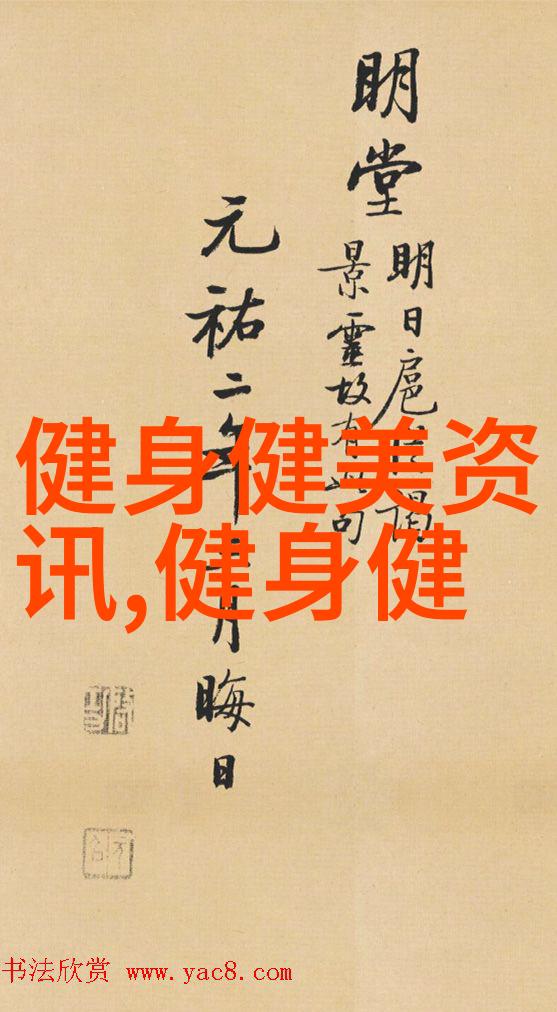 明堂
明日扈從謁
景靈故有此句
元祐二年三月晦日
健身健美资
讯,健身健
书法欣赏 www.yac8.com